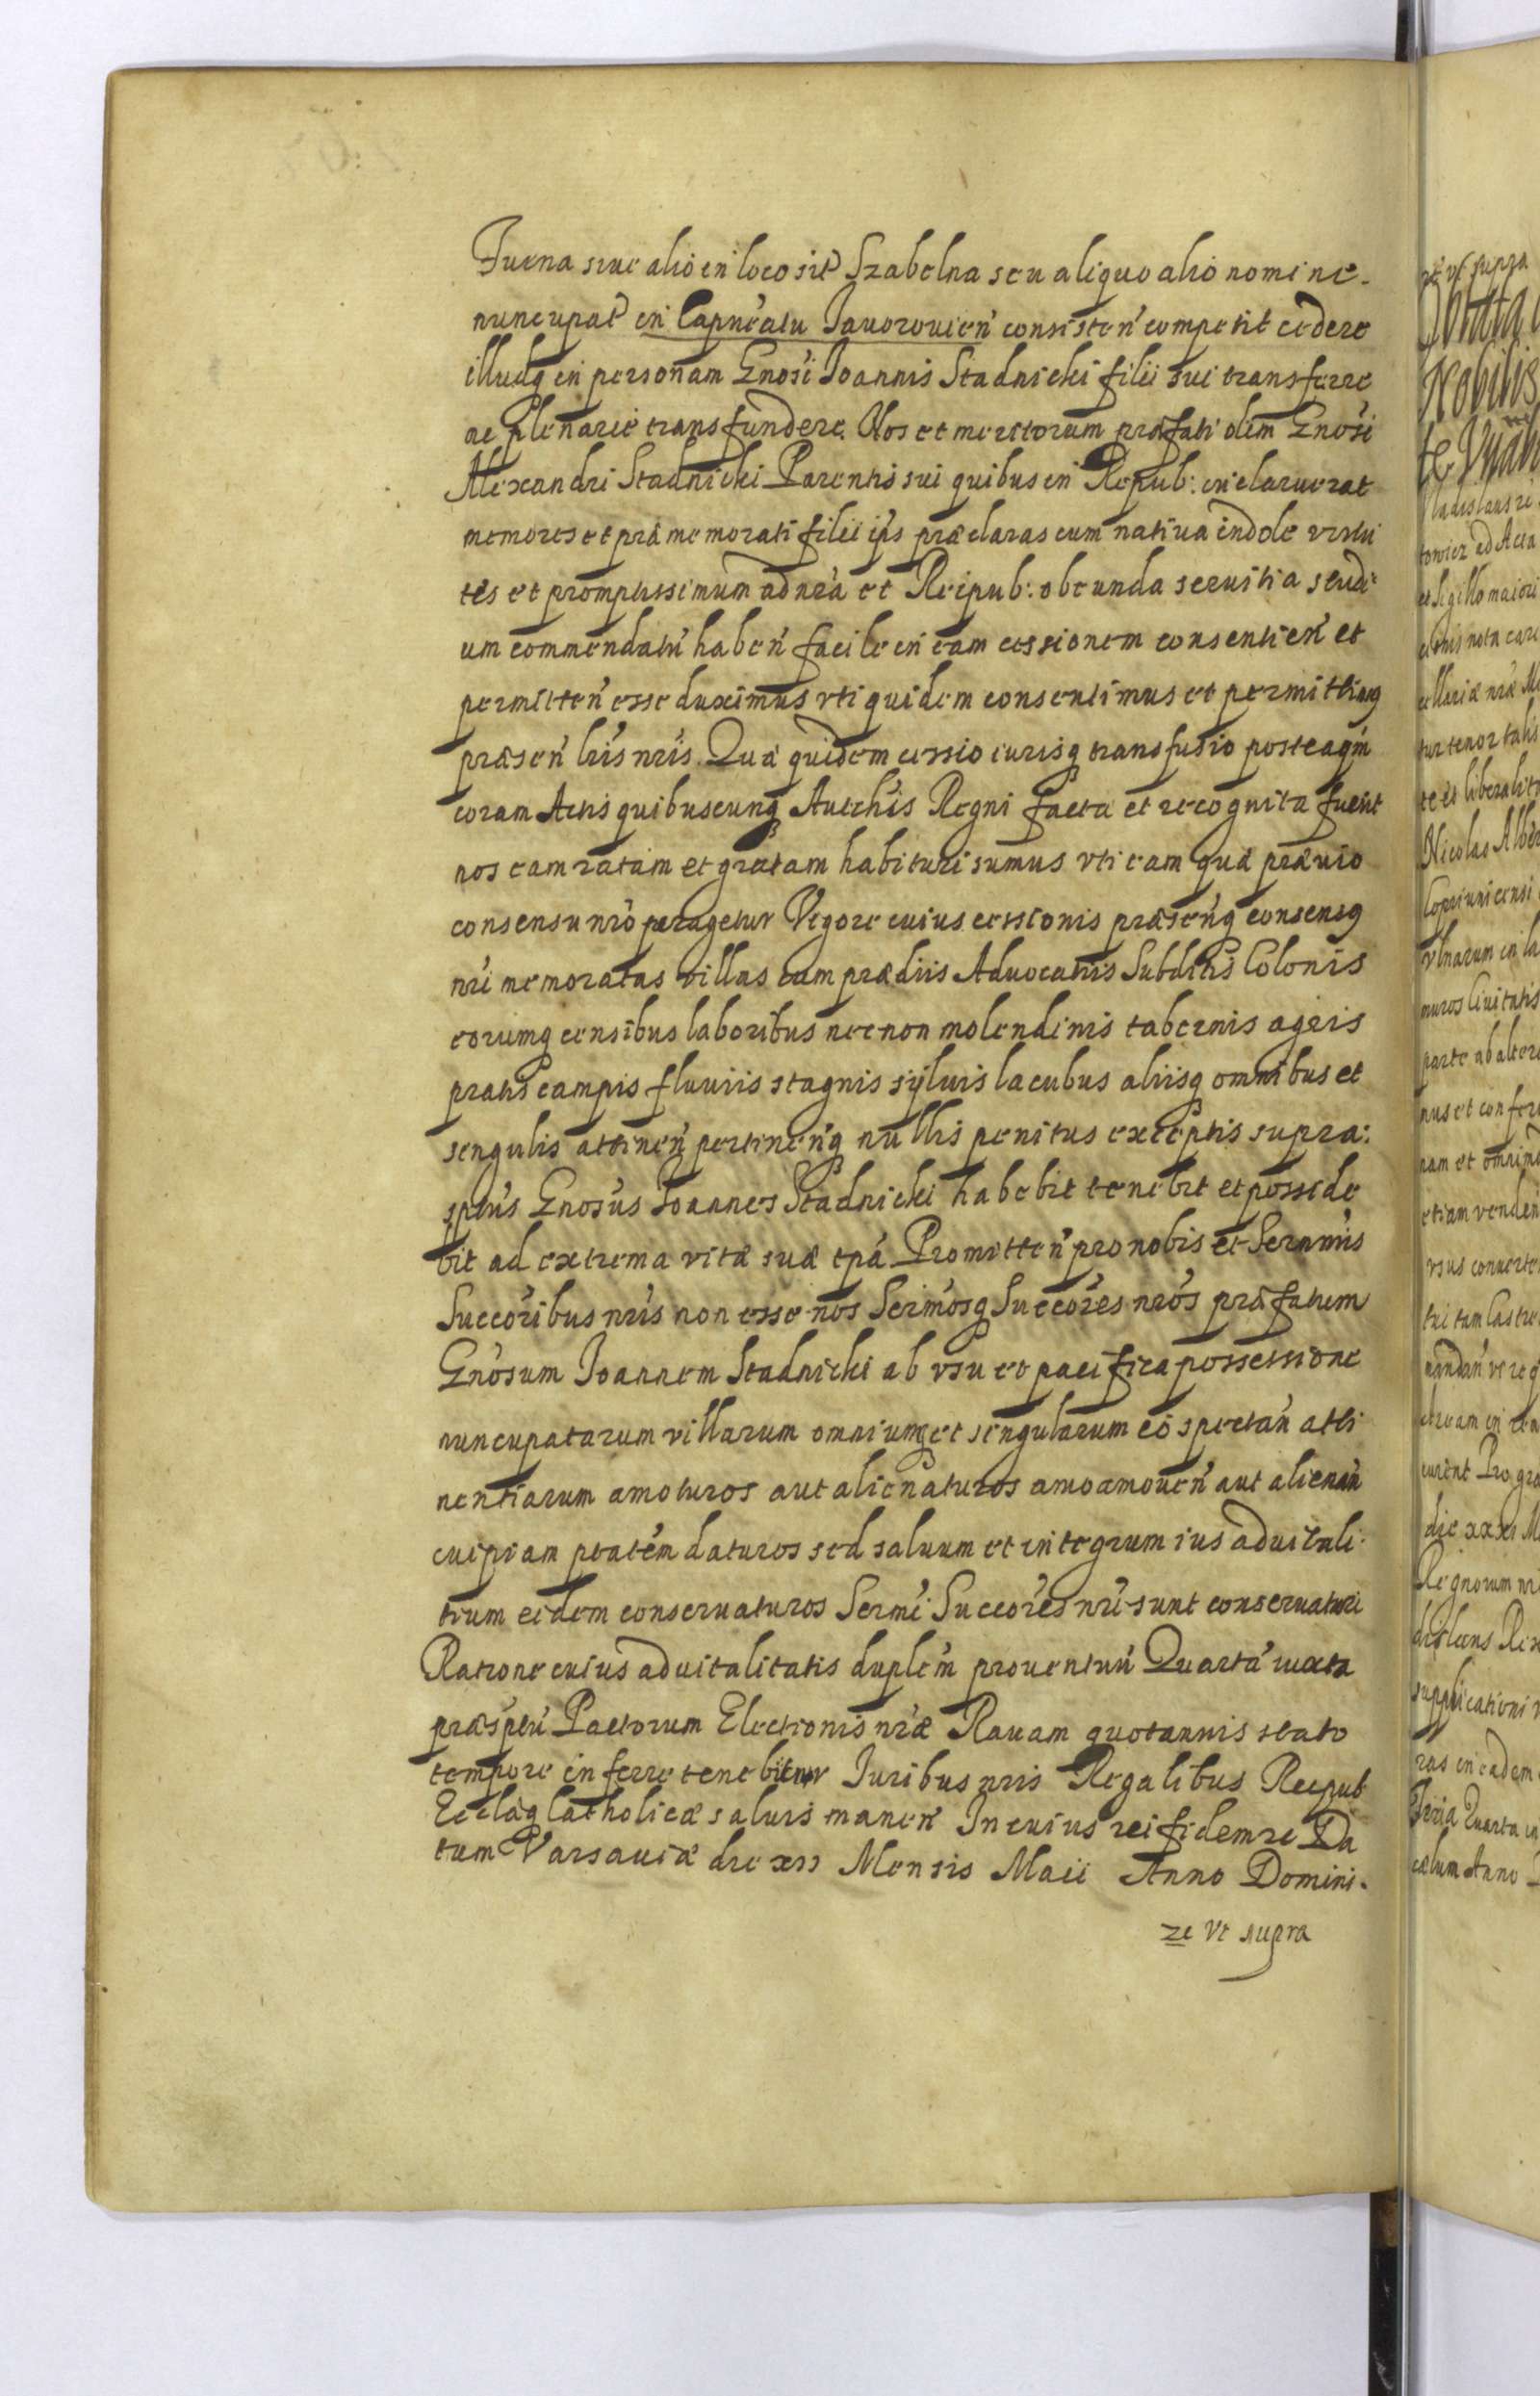 Furna siue alio in loco sit Szabelna seu aliquo alio nomine
nuncupat in Capneatu Jauorouien consisten competit cedere
illudq in personam Gnosi Joannis Stadnicki filii sui transferre
ac plenarie transfundere. Nos et meritorum præfati olim Gnosi
Alexandri Stadnicki Parentis sui quibus in Repub: inclaruerat
memores et præmemorati filii ips præclaras cum natiua indole virtu
tes et promptissimum ad nra et Reipub: obeunda seruitia studi
um commendatu haben facile in eam cessionem consentien et
permitten esse duximus vti quidem consentimus et permittimus
præsen lris nris. Quæ quidem cessio iurisq transfusio posteaqm
coram Actis quibuscunq Autchis Regni facta et recognita fuerit
nos eam ratam et gratam habituri sumus vti eam quæ præuio
consensu nro peragetur Vigore cuius cessionis præsenq consensus
nri memoratas villas cum prædiis Aduocatiis Subditis Colonis
eorumq censibus laboribus nec non molendinis tabernis agris
pratis campis fluuiis stagnis syluis lacubus aliisq omnibus et
singulis attinen pertinenq nullis penitus exceptis supra:
sptus Gnosus Joannes Stadnicki habebit tenebit et posside
bit ad extrema vitæ suæ tpa Promitten pro nobis et Sernmis
Succoribus nris non esse nos Sermosq Succores nros præfatum
Gnosum Joannem Stadnicki ab vsu et pacifica possessione
nuncupatarum villarum omniumq et singularum eo spectan atti
nentiarum amoturos aut alienaturos amoamouen aut alienan
cuipiam ptatem daturos sed saluum et integrum ius aduitali
tium eidem conseruaturos Sermi Succores nri sunt conseruaturi
Ratione cuius aduitalitatis duplem prouentuu Quarta iuxta
præsptu Pactorum Electionis nræ Rauam quotannis stato
tempore inferre tenebitur Juribus nris Regalibus Reipub
Ecclæq Catholicæ saluis manen In cuius rei fidem ze Da
tum Varsauiæ die xii Mensis Maii Anno Domini
ze vt supra